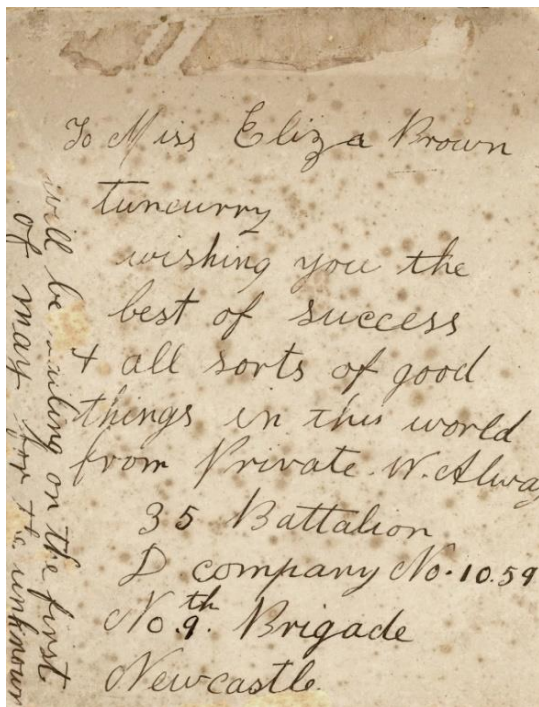 To Miss Eliza Brown
tuncurry
wishing you the
best of success
+ all sorts of good
things in this world
from Private. W. Alway
35 Battalion
D company No. 10.59
No. 9th Brigade
Newcastle.
will be sailing on the first
of may for the unknown